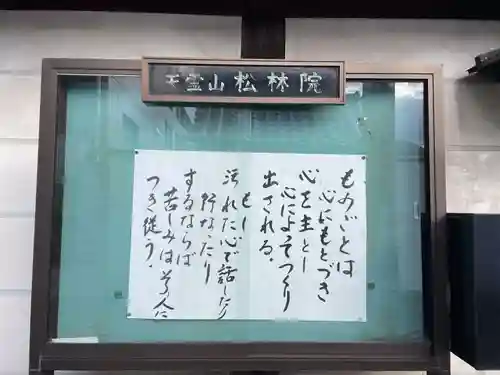 天霊山松林院
ものごとは
心にもとづき
心を主とし
心によってつくり
出される。
もし
汚れた心で話したり
行なったり
するならば
苦しみはその人に
つき従う。